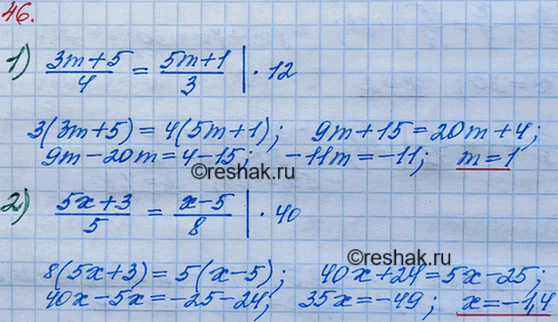 46.
1) (3m+5)/4 = (5m+1)/3 | · 12
3(3m+5)=4(5m+1); 9m+15=20m+4;
9m-20m=4-15; -11m=-11; m=1
©reshak.ru
2) (5x+3)/5 = (x-5)/8 | · 40
©reshak.ru
8(5x+3)=5(x-5); 40x+24=5x-25;
40x-5x=-25-24; 35x=-49; x=-1,4